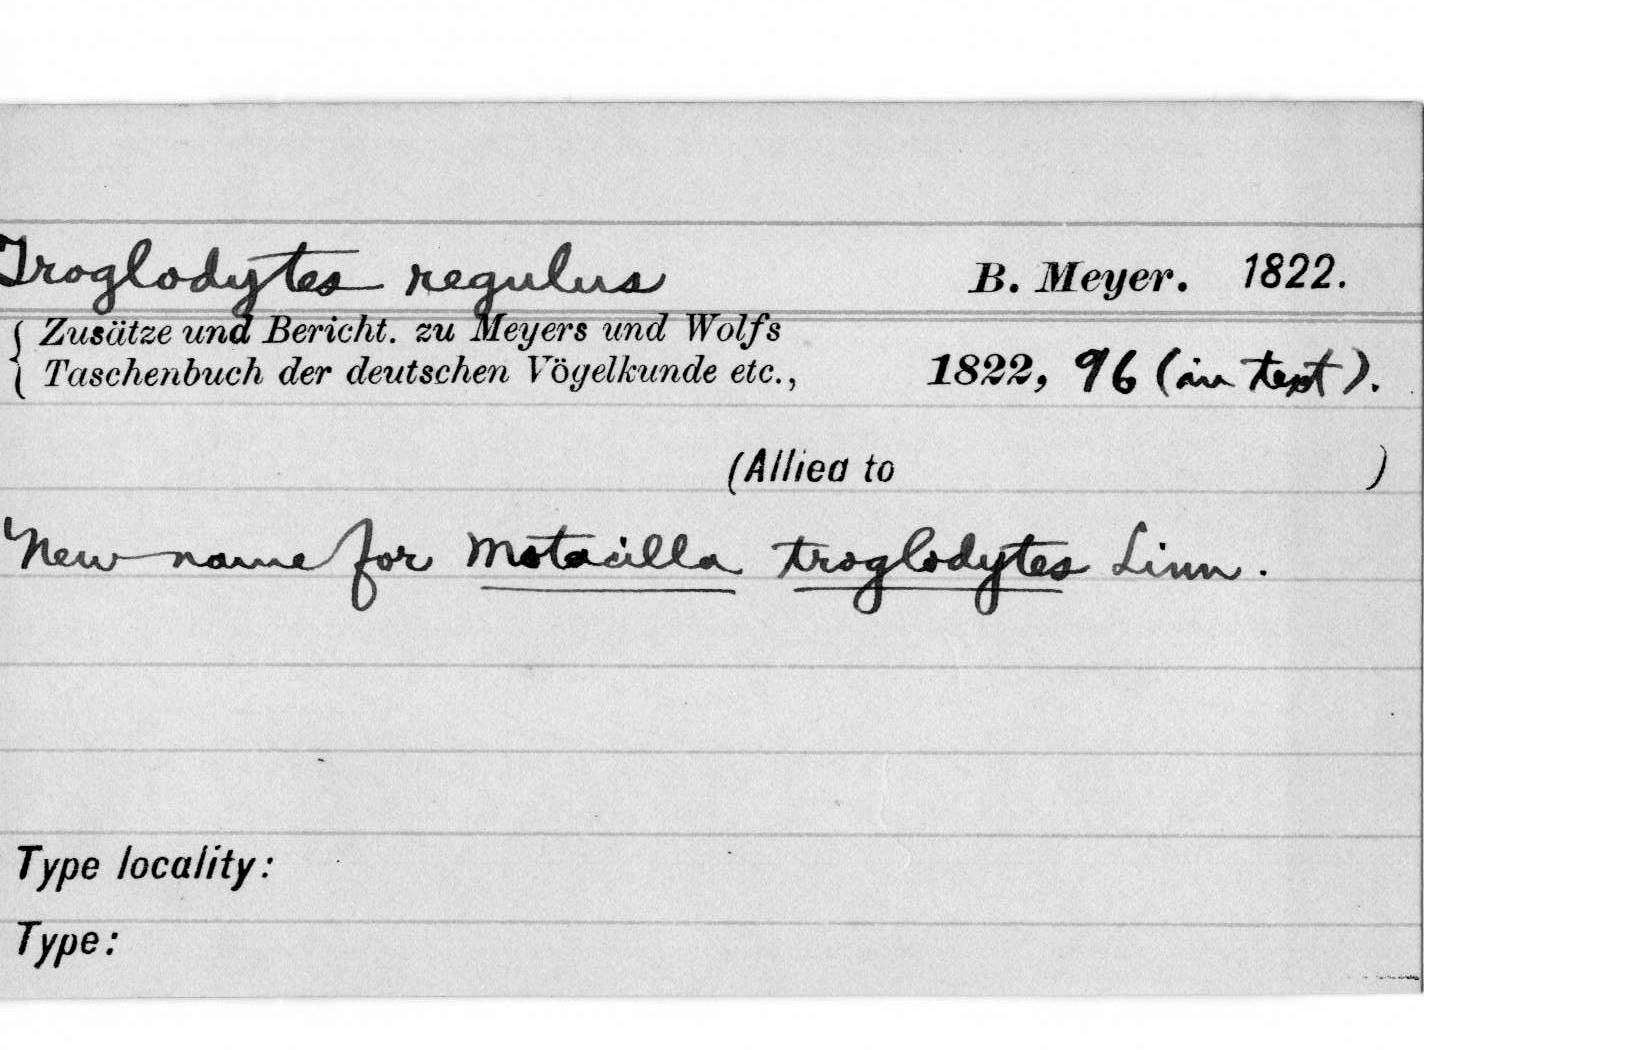 Troglodytes regulus B. Meyer. 1822.
Zusätze und Bericht. zu Meyers und Wolfs
Taschenbuch der deutschen Vögelkunde etc., 1822, 96 (in text).
(Allied to )
New name for Motacilla troglodytes Linn.
Type locality:
Type: